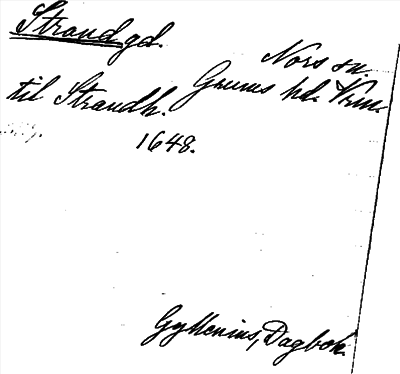 Strand gd.
Nors sn.
Grums hd. Vrm.
til Strandh.
1648.
Gyllenius, Dagbok.